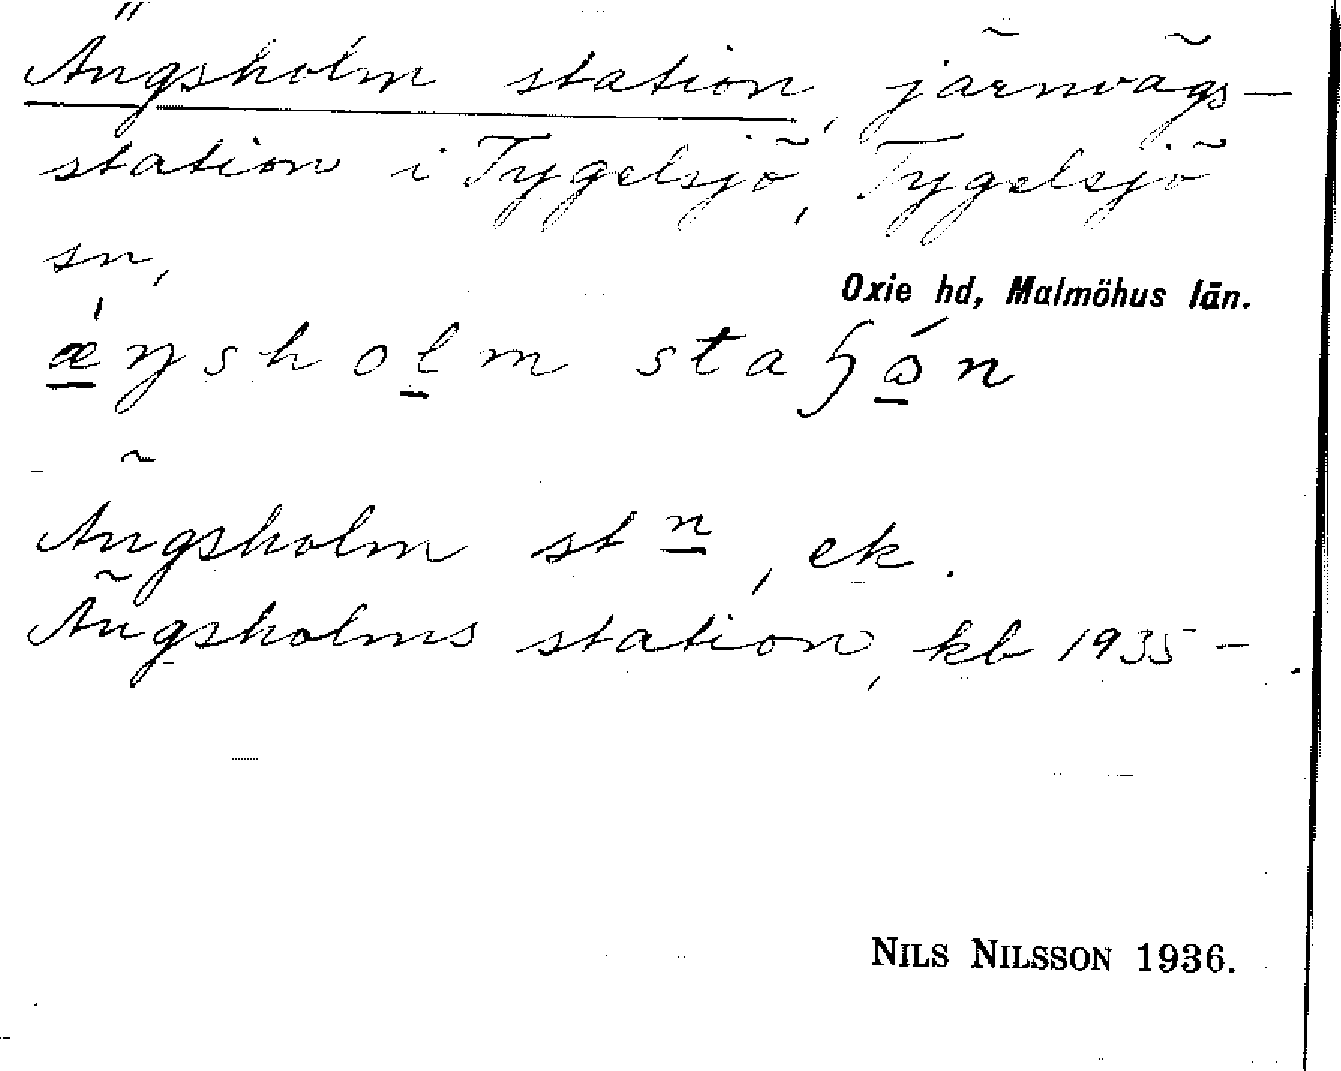 Ängsholm station, järnvägs-
station i Tygelsjö, Tygelsjö
sn,
Oxie hd, Malmöhus län.
ǽŋsholm staʃón
Ängsholm stn, ek.
Ängsholms station, kb 1935 -
NILS NILSSON 1936.